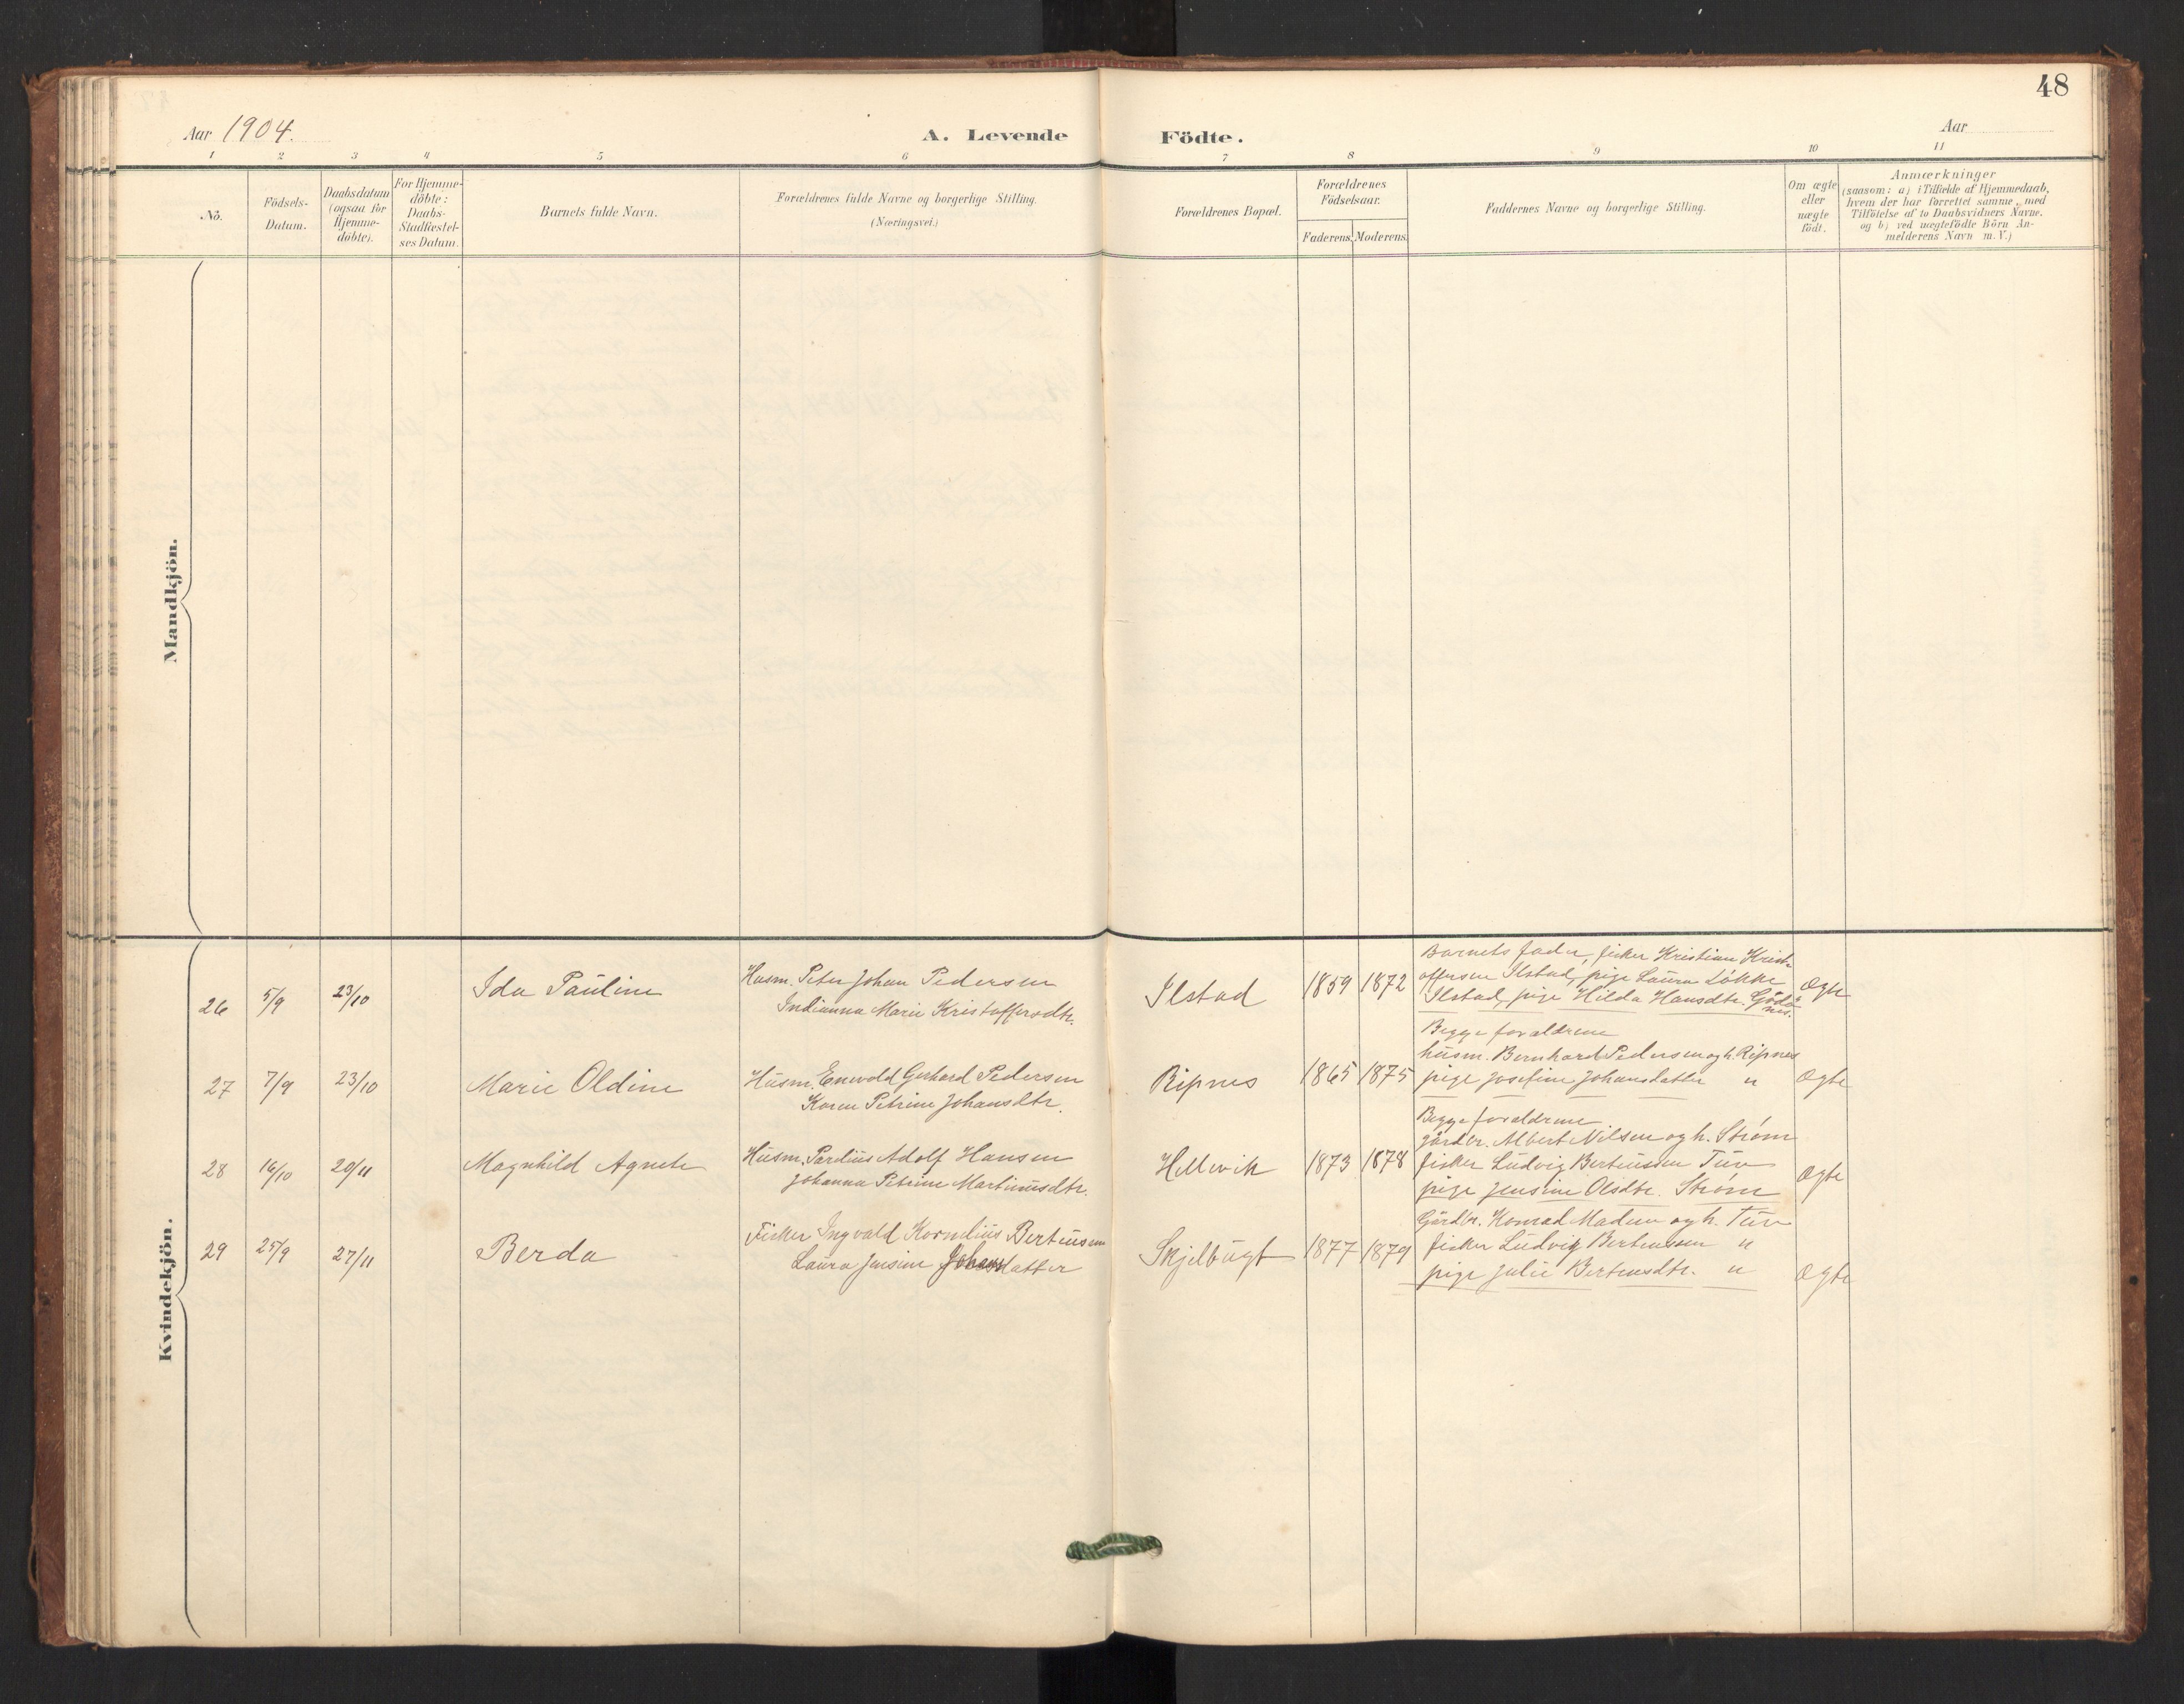 48
Aar 1904.
A. Levende Födte.
Aar
1 2 3 4 5 6 7 8 9 10 11
No.
Födsels-
Datum.
Daabsdatum
(ogsaa for
Hjemme-
döbte).
For Hjemme-
döbte:
Daabs-
Stadfæstel-
ses Datum.
Barnets fulde Navn.
Forældrenes fulde Navne og borgerlige Stilling.
(Næringsvei.)
Forældrenes Bopæl.
Forældrenes
Födselsaar.
Faderens. Moderens.
Faddernes Navne og borgerlige Stilling.
Om ægte
eller
uægte
födt.
Anmærkninger
(saasom: a) i Tilfælde af Hjemmedaab,
hvem der har forrettet samme, med
Tilföielse af to Daabsvidners Navne.
og b) ved uægtefödte Börn An-
melderens Navn m. V.)
Mandkjön.
Kvindekjön.
26 5/9 23/10 Ida Pauline
Husm. Peter Johan Pedersen
Indianna Marie Kristoffersdtr.
Ilstad 1859 1872
Barnets fader, fisker Kristian Krist-
offersen Ilstad, pige Laura Løkke
Ilstad, pige Hilda Hansdtr. Godø-
nes.
Ægte
27 7/9 23/10 Marie Oldine
Husm. Enevold Gerhard Pedersen
Karen Petrine Johansdtr.
Ripnes 1865 1875
Begge forældrene
husm. Bernhard Pedersen og h. Ripnes
pige Josefine Johansdatter "
Ægte
28 16/10 20/11 Magnhild Agnete
Husm. Pardius Adolf Hansen
Johanna Petrine Martinusdtr.
Hellevik 1873 1878
Begge forældrene
gårdbr. Albert Nilsen og h. Strøm
fisker Ludvig Berteussen Tuv
pige Jensine Olsdtr. Strøm
Ægte
29 25/9 27/11 Berda
Fisker Ingvald Kornelius Berteussen
Laura Jensine Johansdatter
Skjelbugt 1877 1879
Gårdbr. Konrad Madsen og h. Tuv
fisker Ludvig Berteussen "
pige Julie Berteusdtr. "
Ægte